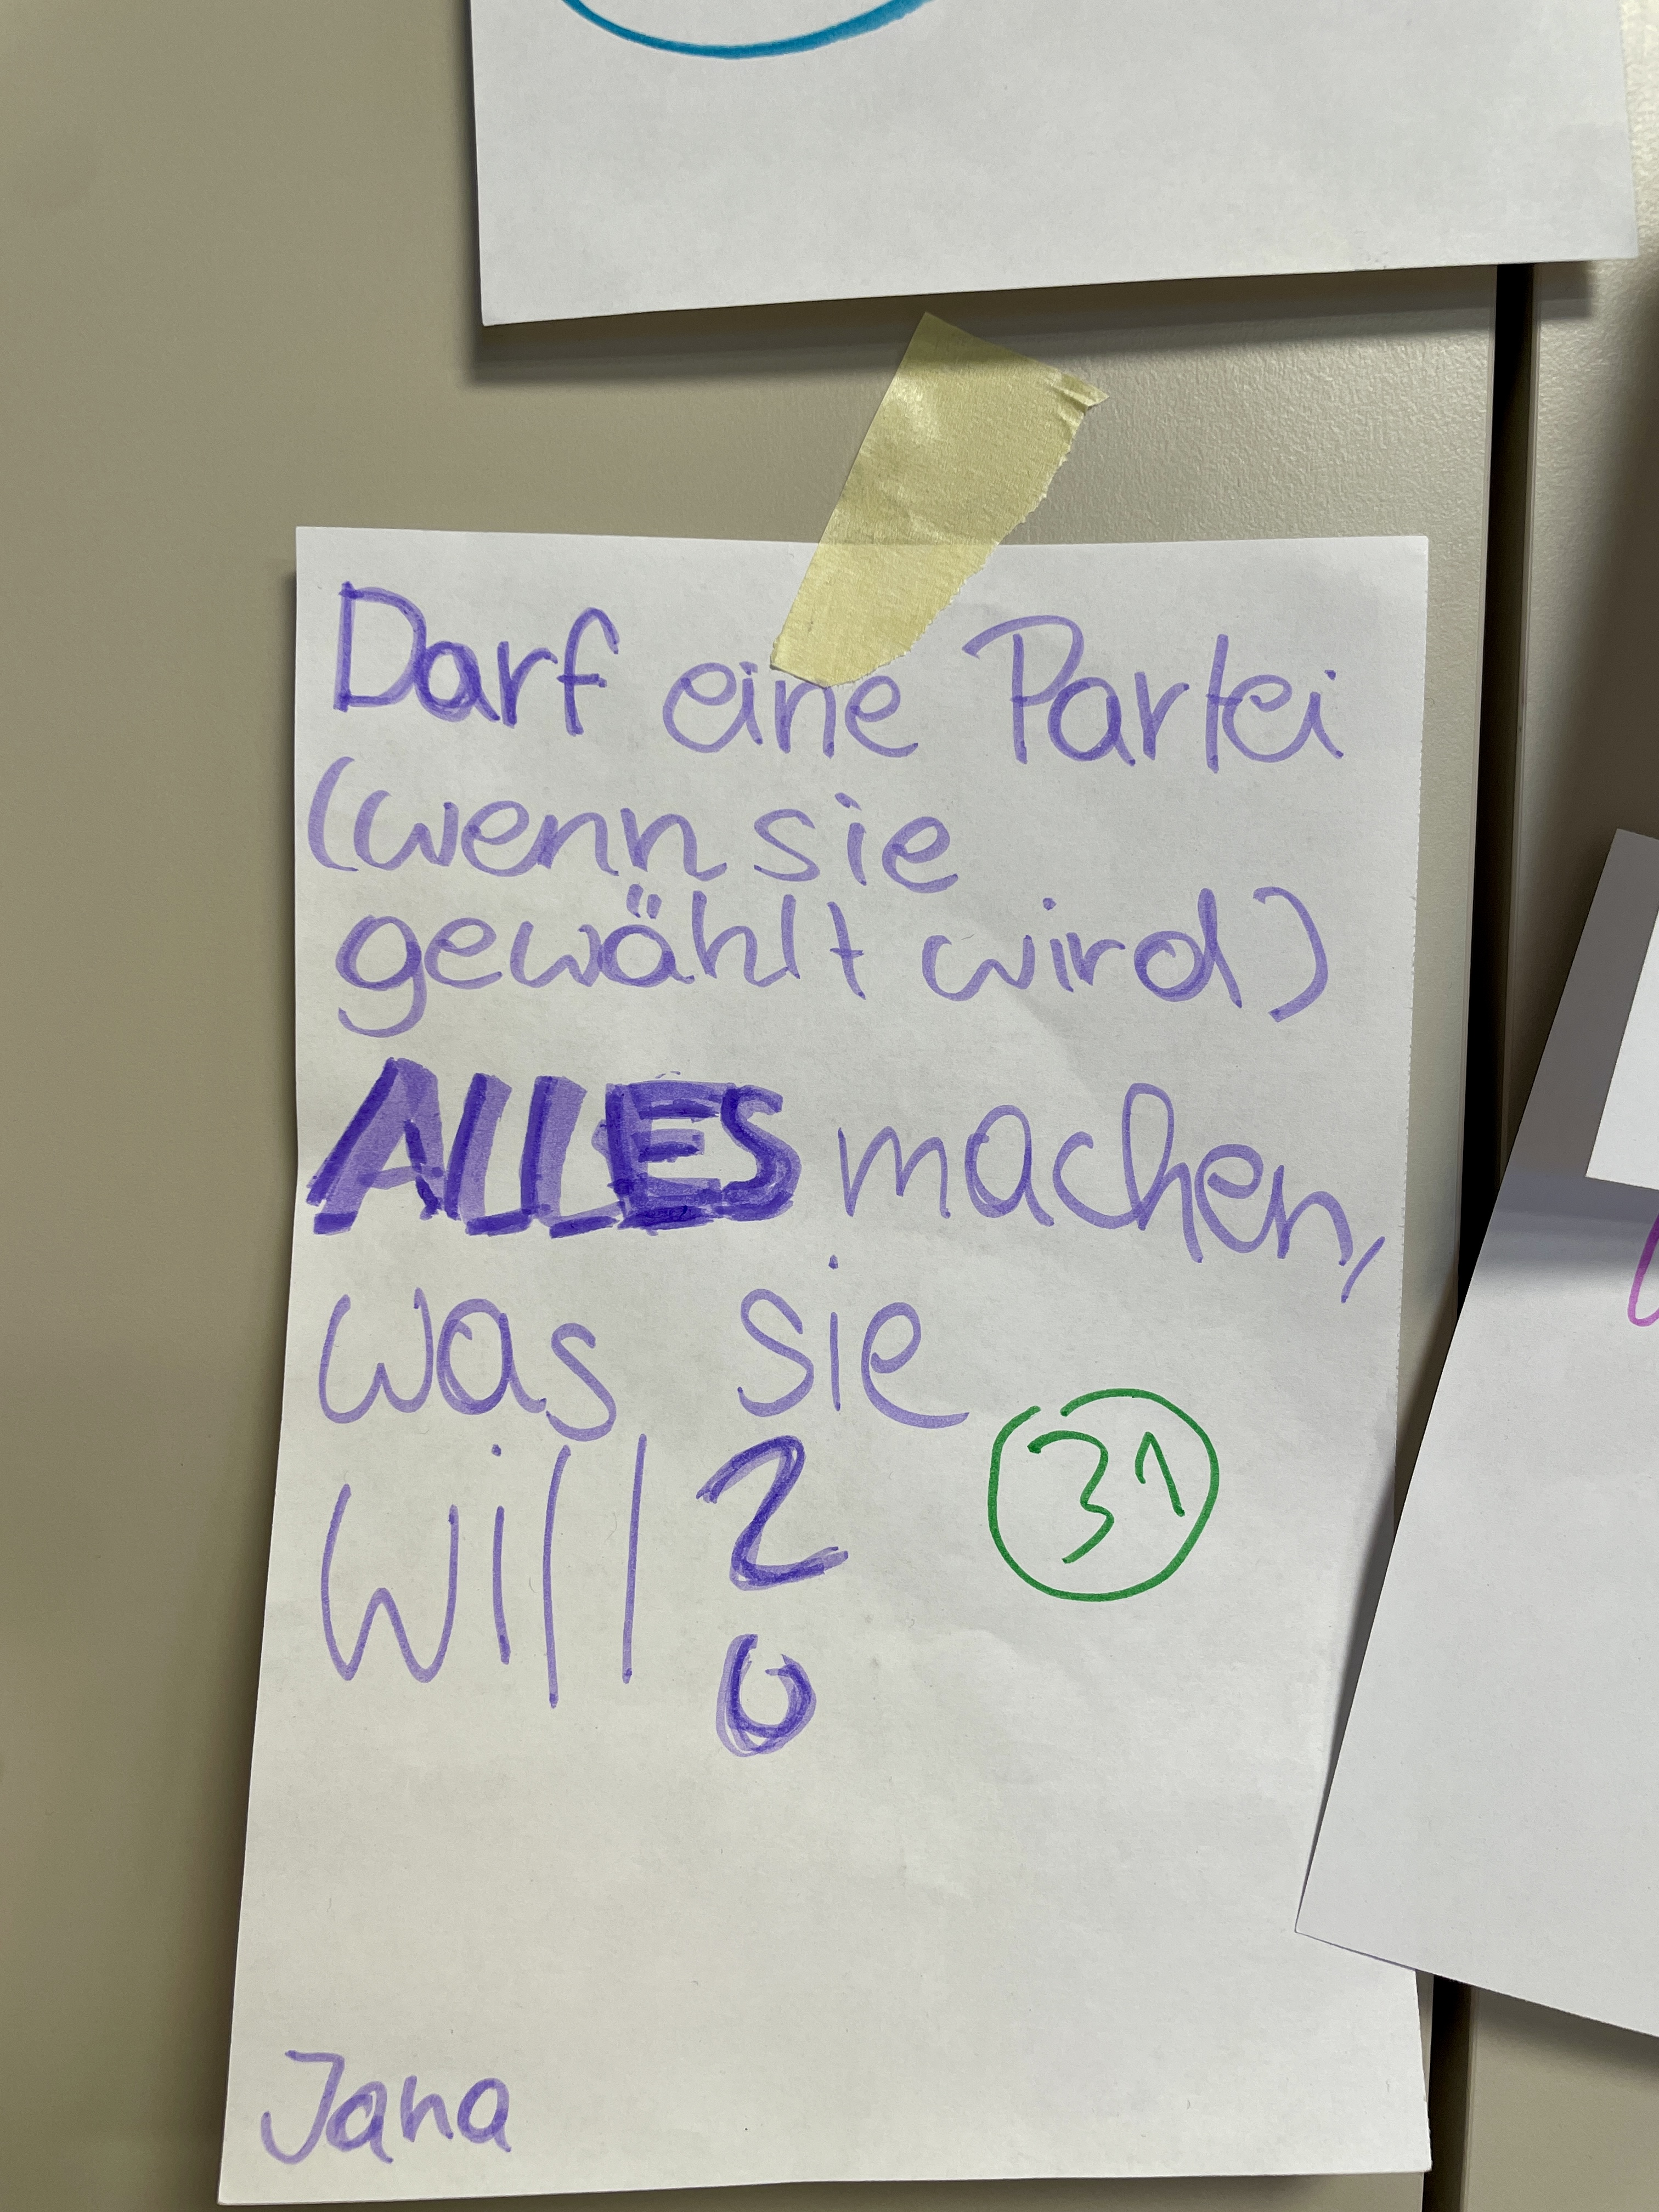 Darf eine Partei
(wenn sie
gewählt wird)
ALLES machen,
was sie
will?
31
Jana